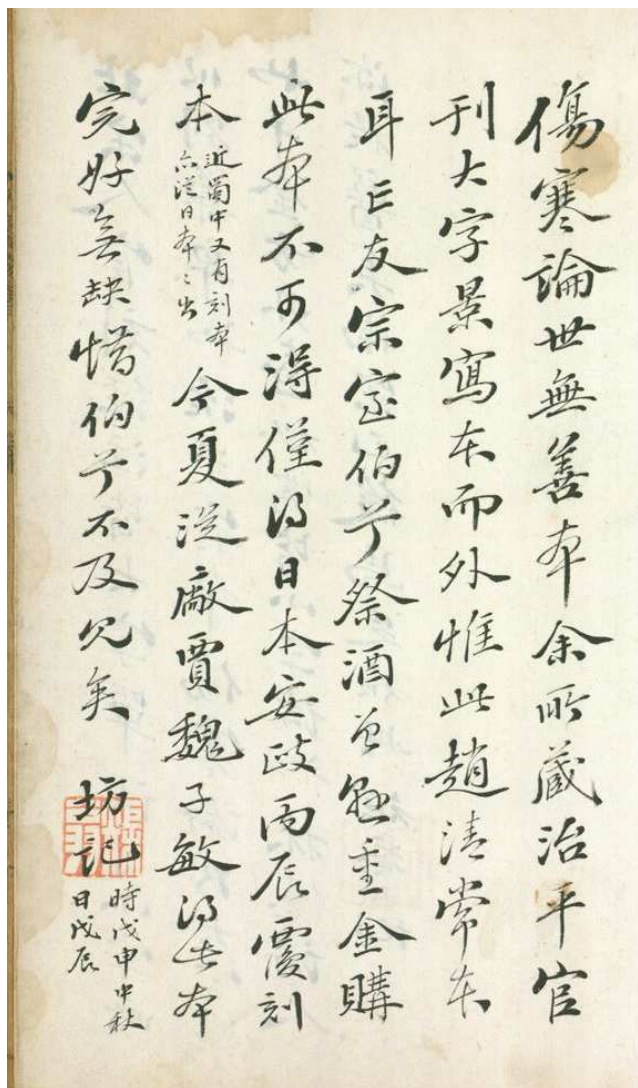 傷寒論世無善本余所藏治平官
刊大字景寫本而外惟此趙清常本
耳亡友宗室伯兮祭酒曾懸重金購
此本不可得僅得日本安政丙辰覆刻
本近蜀中又有刻本
亦從日本本出今夏從廠賈魏子敏得此本
完好無缺惜伯兮不及見矣 坊記時戊申中秋
日戊辰